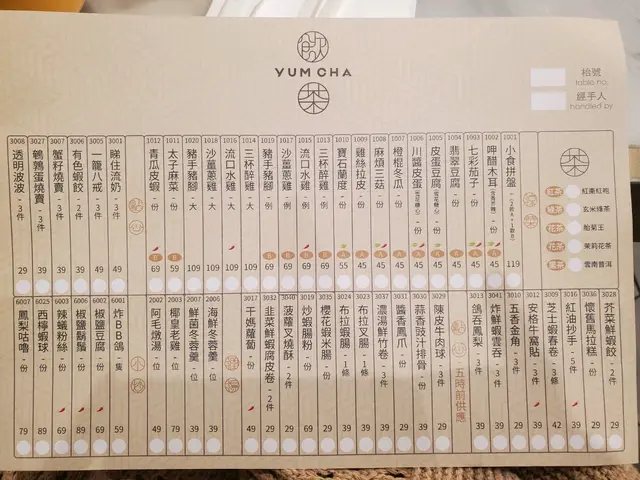 YUM CHA
枱號
table no.
經手人
handled by
紅棗紅袍
玄米綠茶
胎菊王
茉莉花茶
雲南普洱
1001 小食拼盤 119
1002 呷醋木耳 - 份 45
1003 七彩茄子 - 份 45
1004 翡翠豆腐 - 份 45
1005 皮蛋豆腐 - 份 45
1006 川醬皮蛋 - 份 45
1007 橙棍冬瓜 - 份 45
1008 麻煩三菇 - 份 45
1009 雞絲拉皮 - 份 45
1010 寶石蘭度 - 份 55
1013 三杯醉雞 - 例 69
1015 流口水雞 - 例 69
1017 沙薑蔥雞 - 例 69
1019 豬手豬腳 - 例 69
1014 三杯醉雞 - 大 109
1016 流口水雞 - 大 109
1018 沙薑蔥雞 - 大 109
1020 豬手豬腳 - 大 109
1011 太子麻菜 - 份 59
1012 青瓜皮蝦 - 份 69
點心
3001 睇住流奶 - 3件 49
3005 一籠八戒 - 3件 49
3006 有色蝦餃 - 2件 39
3007 蟹籽燒賣 - 3件 39
3027 鵪鶉蛋燒賣 - 3件 39
3008 透明波波 - 3件 29
3028 芥菜鮮蝦餃 - 2件 29
3036 懷舊馬拉糕 - 份 29
3016 紅油抄手 - 5件 39
3009 芝士蝦春卷 - 3件 42
3012 安格牛窩貼 - 3件 39
3010 五香金角 - 3件 29
3041 炸鮮蝦雲吞 - 3件 39
3013 鴿吞鳳梨 - 3件 39
點心
五時前供應
3029 陳皮牛肉球 - 3件 29
3030 蒜香豉汁排骨 - 份 29
3031 醬香鳳爪 - 份 29
3025 濃湯鮮竹卷 - 3件 39
3023 布拉叉腸 - 1條 39
3024 布拉蝦腸 - 1條 39
3035 櫻花蝦米腸 - 份 39
3019 炒蝦腸粉 - 份 69
3040 菠蘿叉燒酥 - 2件 29
3032 韭菜鮮蝦腐皮卷 - 2件 29
3017 干媽蘿蔔 - 份 49
2006 海鮮冬蓉羹 - 位 49
2005 鮮菌冬蓉羹 - 位 49
2003 椰皇老雞 - 位 79
2002 阿毛燉湯 - 位 49
6001 炸BB鴿 - 隻 59
6002 椒鹽豆腐 - 份 69
6006 椒鹽鬍鬚 - 份 89
6003 辣蟻粉絲 - 份 69
6025 西檸蝦球 - 份 89
6007 鳳梨咕嚕 - 份 79